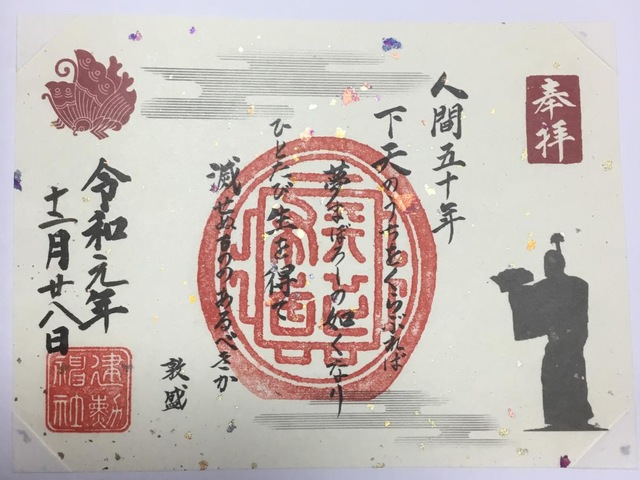 奉拝
人間五十年
下天のうちをくらぶれば
夢まぼろしの如くなり
ひとたび生を得て
滅せぬもののあるべきか
敦盛
令和元年
十二月廿八日
建勲神社